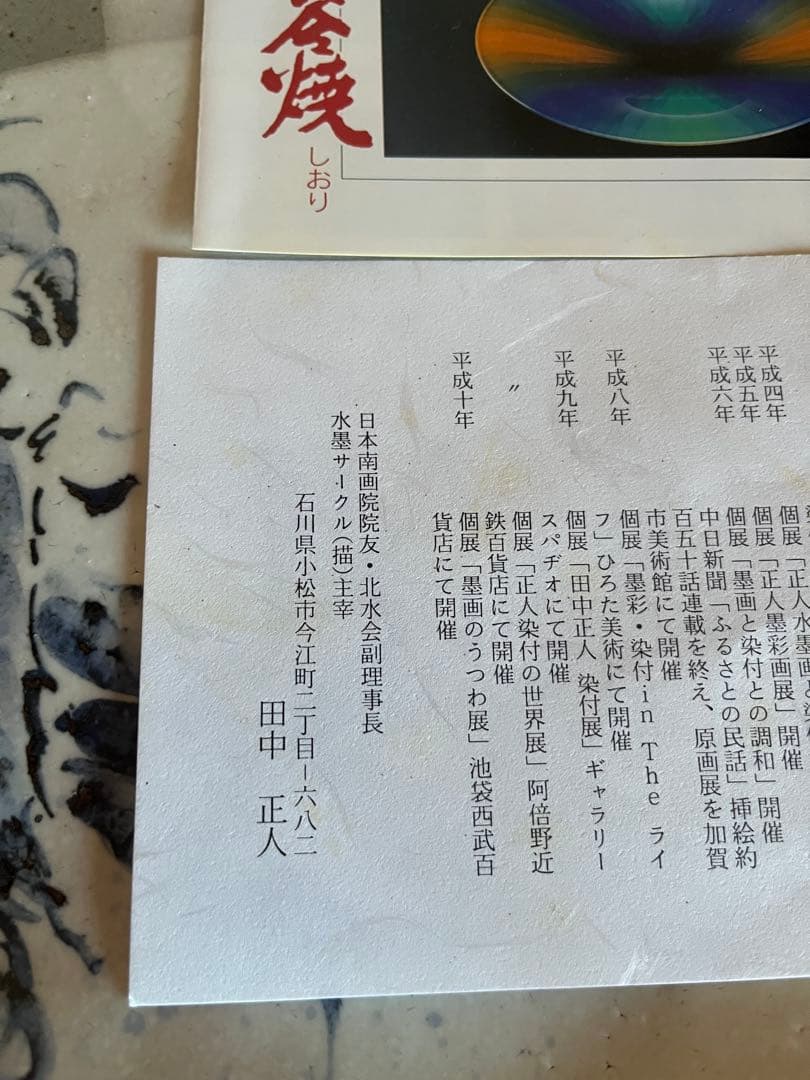 谷焼
しおり
平成四年
個展「正人墨彩画展」開催
平成五年
個展「墨画と染付との調和」開催
平成六年
中日新聞「ふるさとの民話」挿絵約
百五十話連載を終え、原画展を加賀
市美術館にて開催
平成八年
個展「墨彩・染付in The ライ
フ」ひろた美術にて開催
平成九年
個展「田中正人 染付展」ギャラリー
スパヂオにて開催
〃
個展「正人染付の世界展」阿倍野近
鉄百貨店にて開催
平成十年
個展「墨画のうつわ展」池袋西武百
貨店にて開催
日本南画院院友・北水会副理事長
水墨サークル(描)主宰
石川県小松市今江町二丁目ー六八二
田中 正人